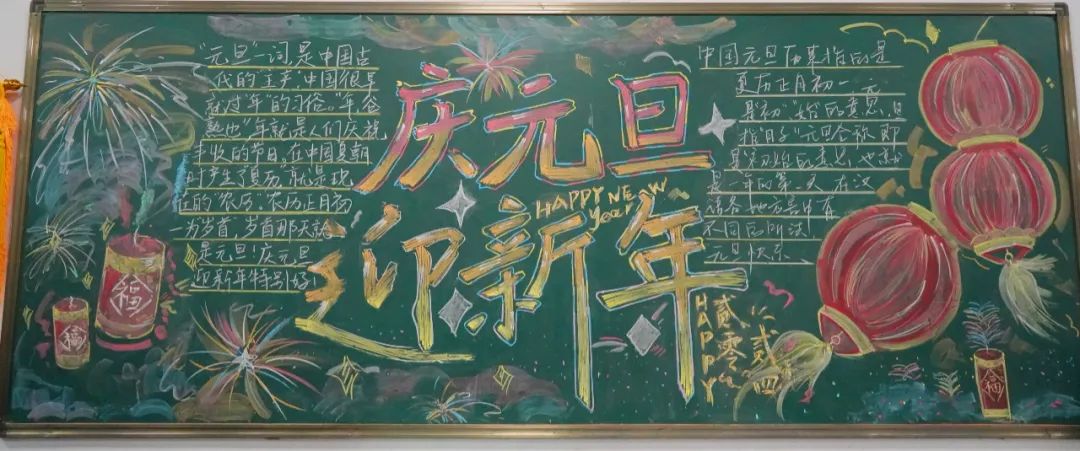 "元旦"一词,是中国古
代的"土产".中国很早
就过"年"的习俗."年谷
熟也"年就是人们庆祝
丰收的节日,在中国夏朝
时产生了夏历"就是现
在的"农历".农历正月初
一为岁首,岁首那天就
是元旦!庆元旦
迎新年特别好!
庆元旦
HAPPY NEW
year
迎新年
HAPPY
贰零
贰四
中国元旦历来指的是
夏历正月初一.元
是"初""始"的意思,旦
指"日子"元旦合称即
是"初始的
是一年的第一天 在汉
不同
元旦快乐
福
福
福